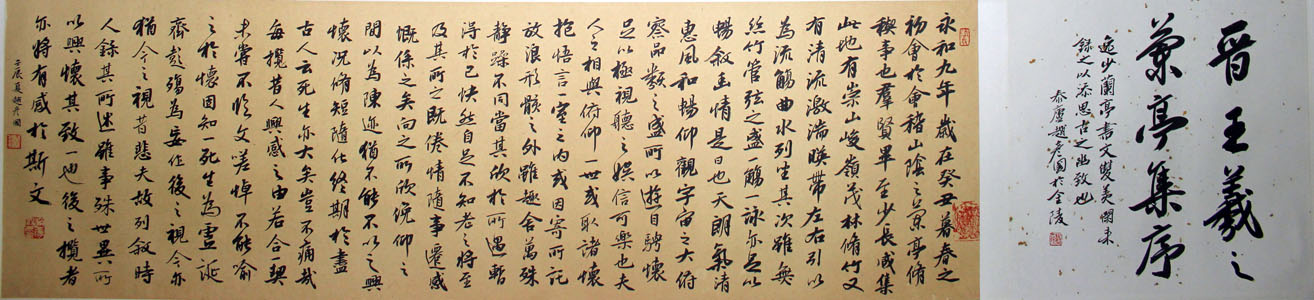 晋王羲之
蘭亭集序
逸少蘭亭書文雙美閑來
錄之以添思古之幽致也
泰廬趙彥國於金陵
永和九年歲在癸丑暮春之
初會於會稽山陰之蘭亭脩
禊事也羣賢畢至少長咸集
此地有崇山峻嶺茂林脩竹又
有清流激湍暎帶左右引以
為流觴曲水列坐其次雖無
絲竹管弦之盛一觴一詠亦足以
暢敘幽情是日也天朗氣清
惠風和暢仰觀宇宙之大俯
察品類之盛所以遊目騁懷
足以極視聽之娛信可樂也夫
人之相與俯仰一世或取諸懷
抱悟言一室之內或因寄所託
放浪形骸之外雖趣舍萬殊
靜躁不同當其欣於所遇暫
得於己快然自足不知老之將至
及其所之既倦情隨事遷感
慨係之矣向之所欣俛仰之
間以為陳迹猶不能不以之興
懷況脩短隨化終期於盡
古人云死生亦大矣豈不痛哉
每攬昔人興感之由若合一契
未嘗不臨文嗟悼不能喻
之於懷固知一死生為虛誕
齊彭殤為妄作後之視今亦
猶今之視昔悲夫故列敘時
人錄其所述雖事殊世異所
以興懷其致一也後之攬者
亦將有感於斯文
壬辰夏趙彥國